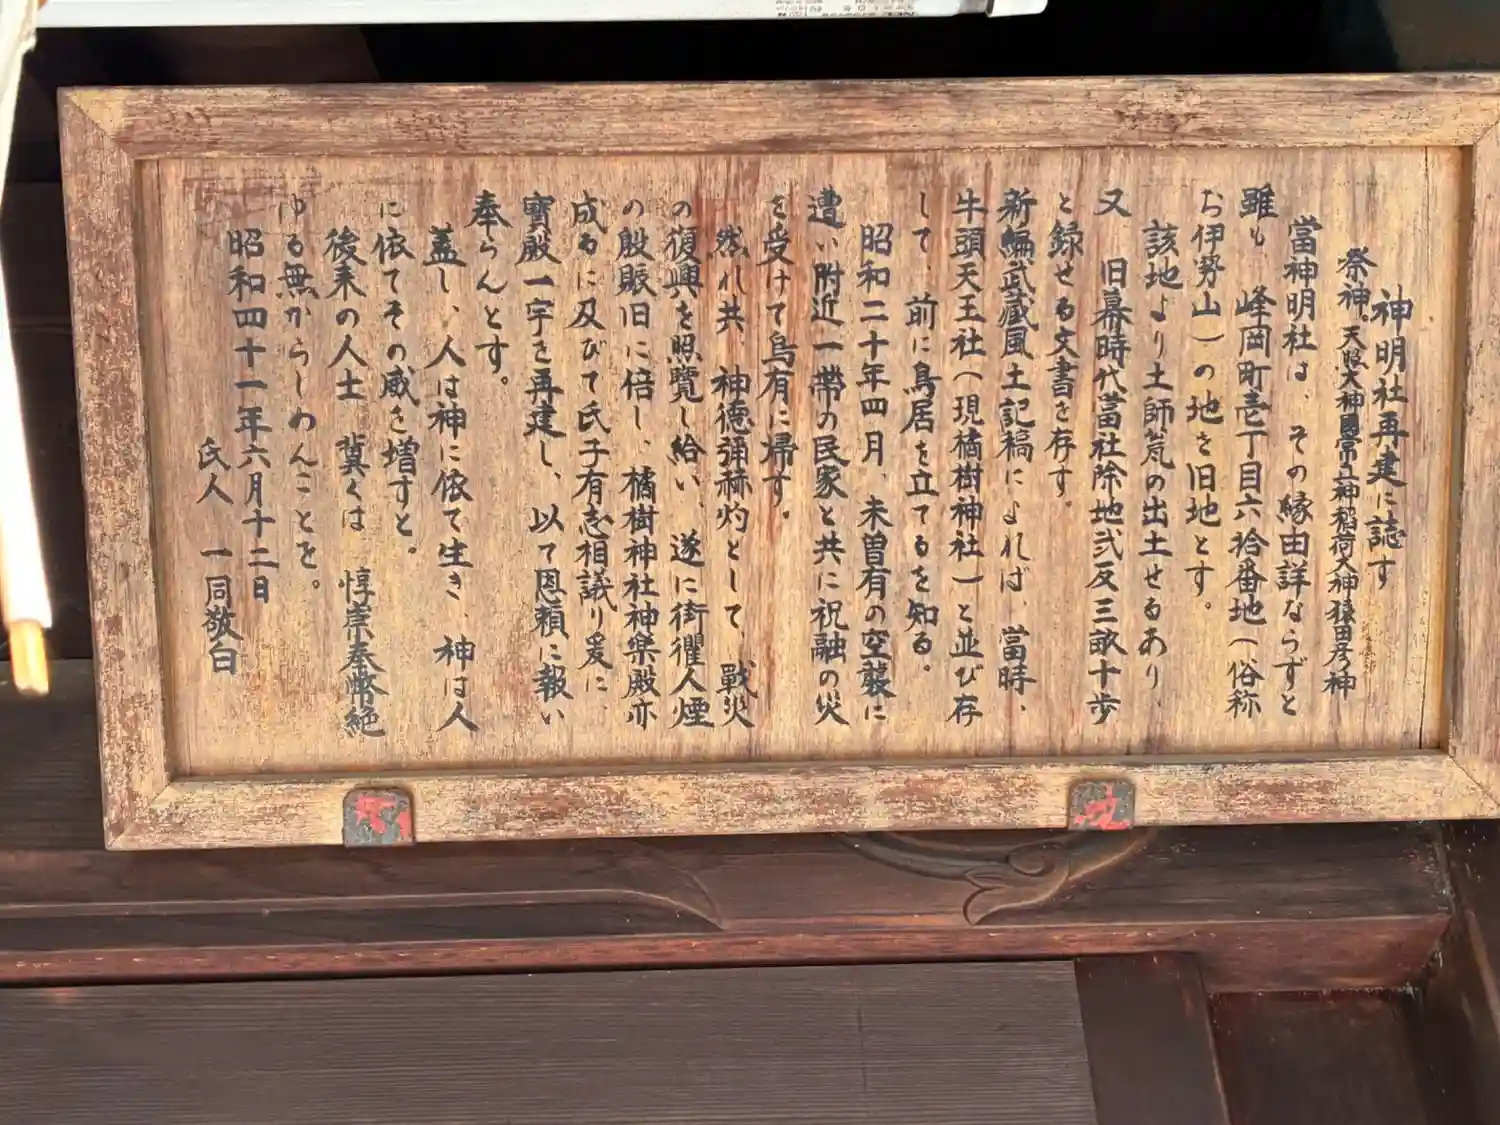 神明社再建に誌す
祭神、天照大神國常立神稲荷大神猿田彦神
當神明社は、その縁由詳ならずと
雖も、峰岡町壱丁目六拾番地(俗称
お伊勢山)の地を旧地とす。
該地より土師器の出土せるあり、
又 旧幕時代當社除地弐反三畝十歩
と録せる文書を存す。
新編武蔵風土記稿によれば、當時、
牛頭天王社(現橘樹神社)と並び存
して、前に鳥居を立てるを知る。
昭和二十年四月、未曽有の空襲に
遭い附近一帯の民家と共に祝融の災
を受けて烏有に帰す。
然れ共、神徳弥赫灼として、戰災
の復興を照覧し給い、遂に街衢人煙
の殷賑旧に倍し、橘樹神社神樂殿亦
成るに及びて氏子有志相議り爰に、
寳殿一宇を再建し、以て恩頼に報い
奉らんとす。
蓋し、人は神に依て生き、神は人
に依てその威を増すと。
後来の人士 冀くは 惇崇奉幣絶
ゆる無からしめんことを。
昭和四十一年六月十二日
氏人 一同敬白